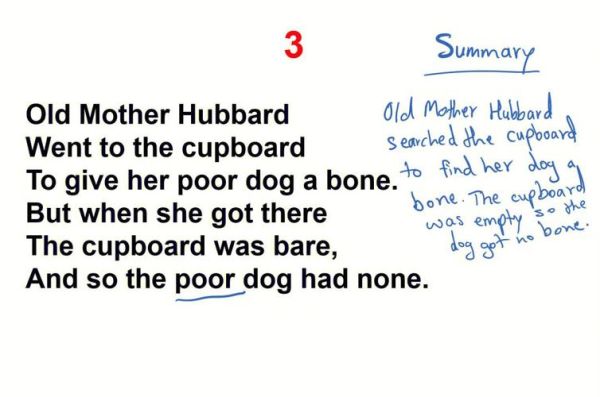 3
Old Mother Hubbard
Went to the cupboard
To give her poor dog a bone.
But when she got there
The cupboard was bare,
And so the poor dog had none.
Summary
Old Mother Hubbard
searched the cupboard
to find her dog a
bone. The cupboard
was empty so the
dog got no bone.